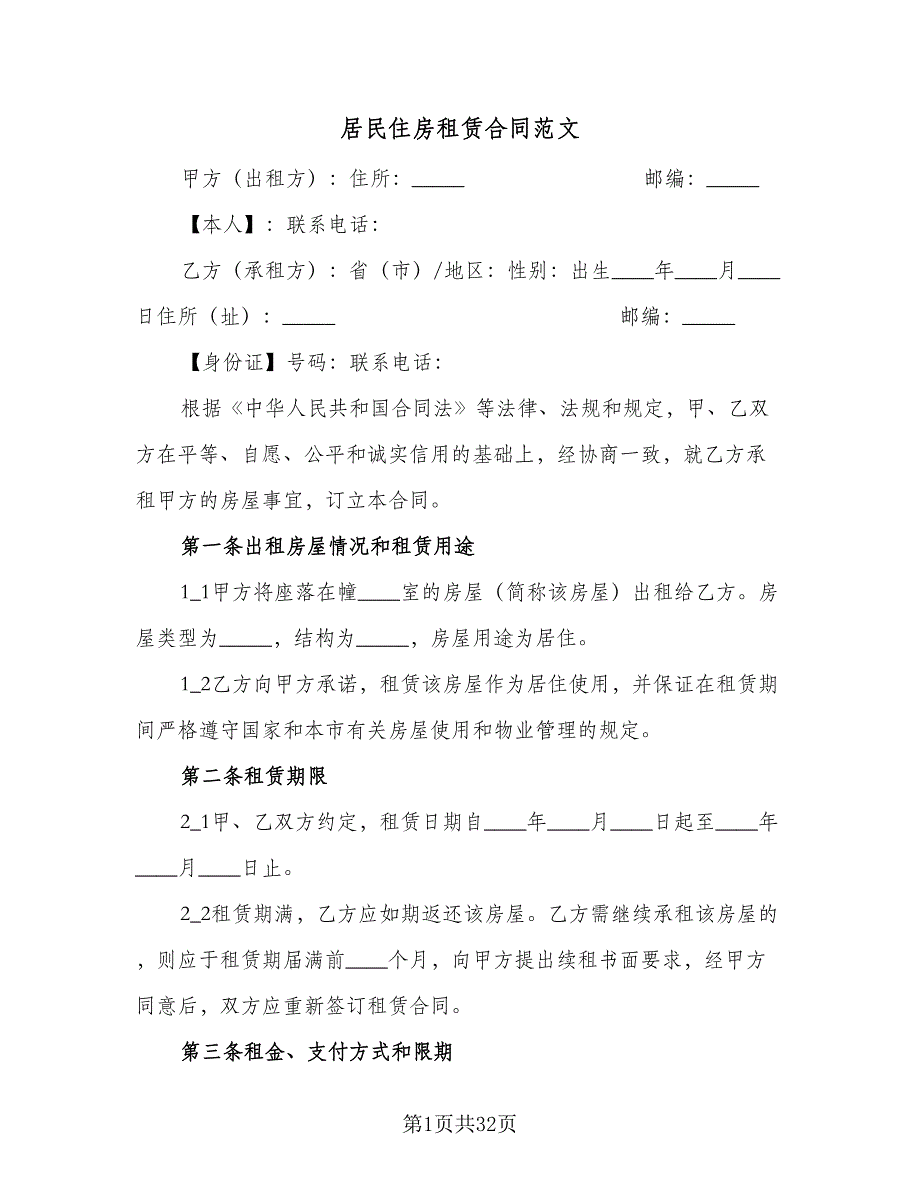 居民住房租赁合同范文
甲方（出租方）：住所：_____ 邮编：_____
【本人】：联系电话：
乙方（承租方）：省（市）/地区：性别：出生____年____月____
日住所（址）：_____ 邮编：_____
【身份证】号码：联系电话：
根据《中华人民共和国合同法》等法律、法规和规定，甲、乙双
方在平等、自愿、公平和诚实信用的基础上，经协商一致，就乙方承
租甲方的房屋事宜，订立本合同。
第一条出租房屋情况和租赁用途
1_1甲方将座落在幢____室的房屋（简称该房屋）出租给乙方。房
屋类型为_____，结构为_____，房屋用途为居住。
1_2乙方向甲方承诺，租赁该房屋作为居住使用，并保证在租赁期
间严格遵守国家和本市有关房屋使用和物业管理的规定。
第二条租赁期限
2_1甲、乙双方约定，租赁日期自____年____月____日起至____年
____月____日止。
2_2租赁期满，乙方应如期返还该房屋。乙方需继续承租该房屋的
，则应于租赁期届满前____个月，向甲方提出续租书面要求，经甲方
同意后，双方应重新签订租赁合同。
第三条租金、支付方式和限期
第1页共32页